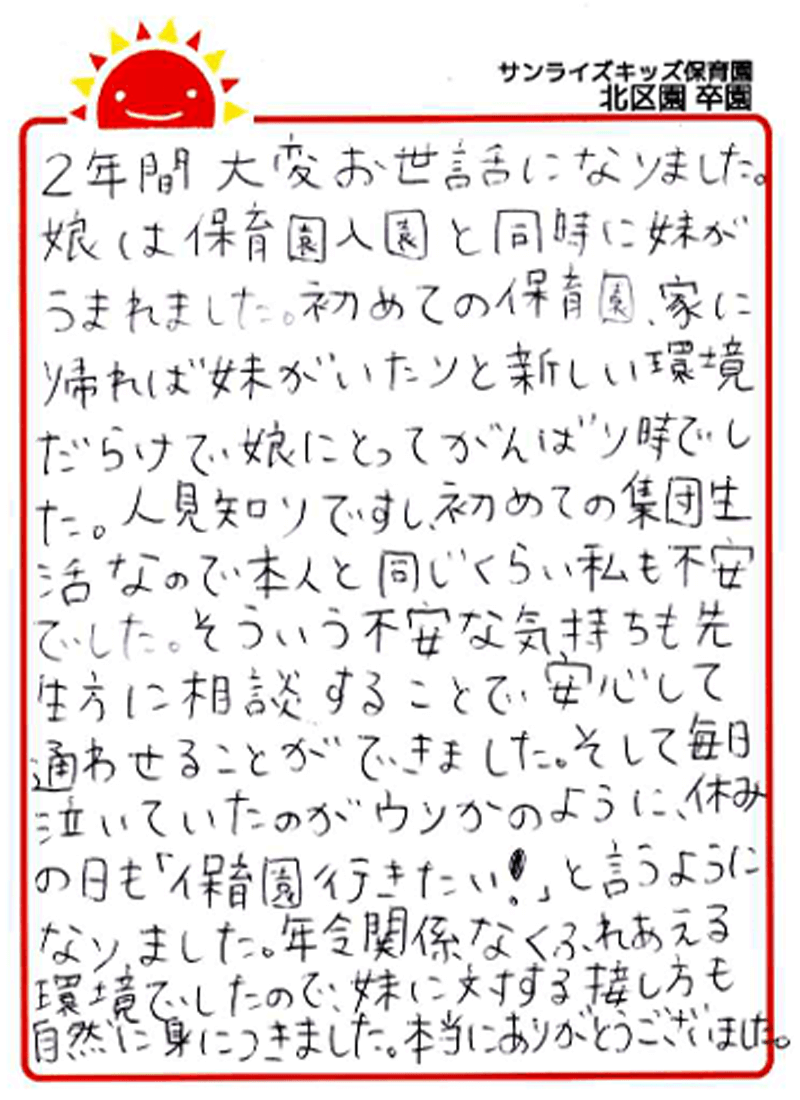 サンライズキッズ保育園
北区園 卒園
2年間 大変お世話になりました。
娘は保育園入園と同時に妹が
うまれました。初めての保育園、家に
帰れば妹がいたりと新しい環境
だらけで娘にとってがんばり時でし
た。人見知りですし、初めての集団生
活なので本人と同じくらい私も不安
でした。そういう不安な気持ちも先
生方に相談することで安心して
通わせることができました。そして毎日
泣いていたのがウソかのように、休み
の日も「保育園行きたい!」と言うように
なりました。年令関係なくふれあえる
環境でしたので、妹に対する接し方も
自然に身につきました。本当にありがとうございました。